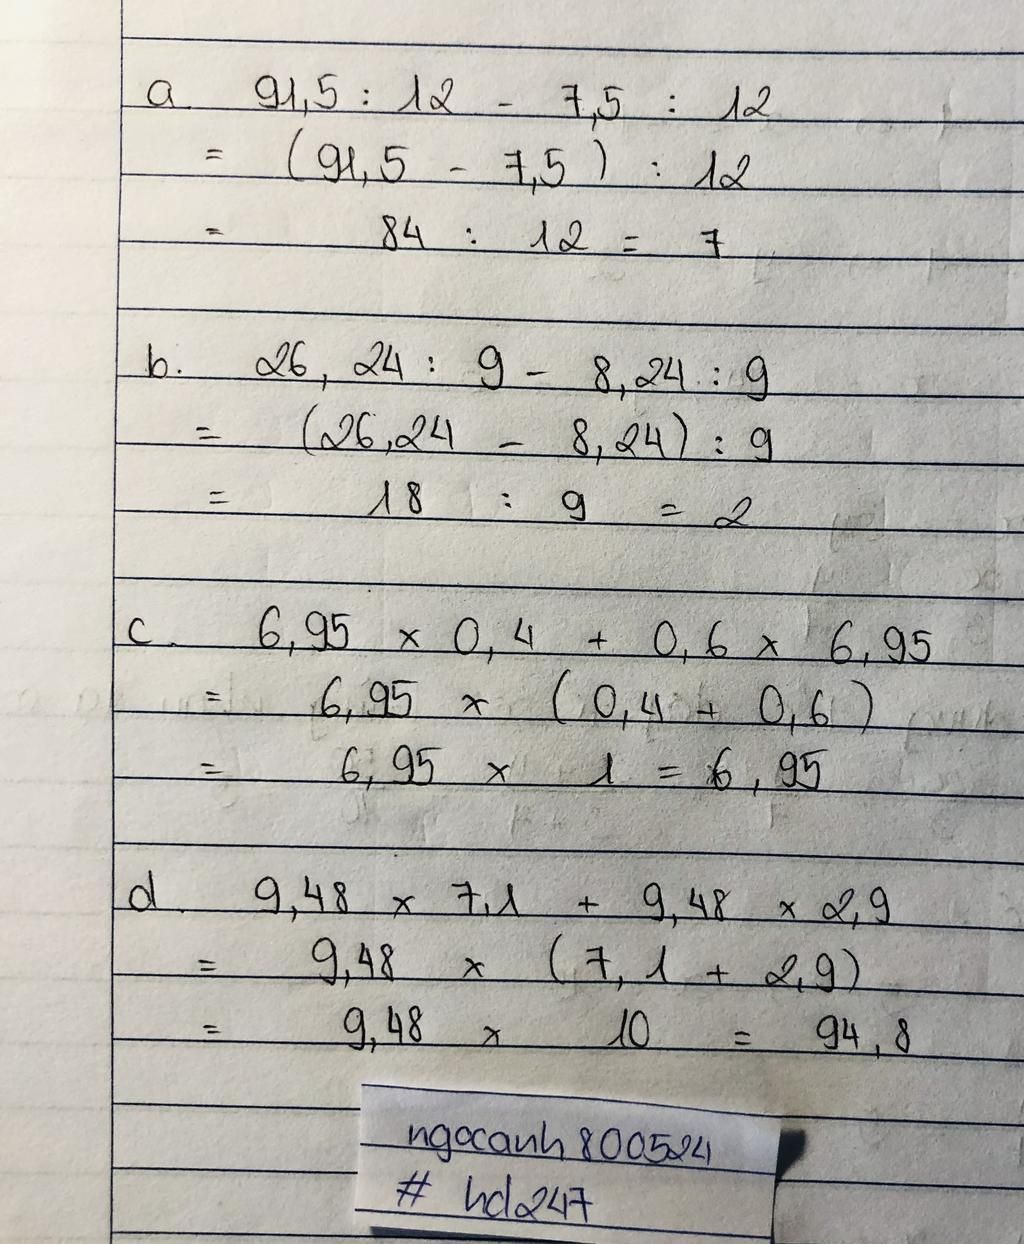 a. 91,5 : 12 - 7,5 : 12
= (91,5 - 7,5) : 12
= 84 : 12 = 7
b. 26,24 : 9 - 8,24 : 9
= (26,24 - 8,24) : 9
= 18 : 9 = 2
c. 6,95 x 0,4 + 0,6 x 6,95
= 6,95 x (0,4 + 0,6)
= 6,95 x 1 = 6,95
d. 9,48 x 7,1 + 9,48 x 2,9
= 9,48 x (7,1 + 2,9)
= 9,48 x 10 = 94,8
ngocanh800524
# hd247